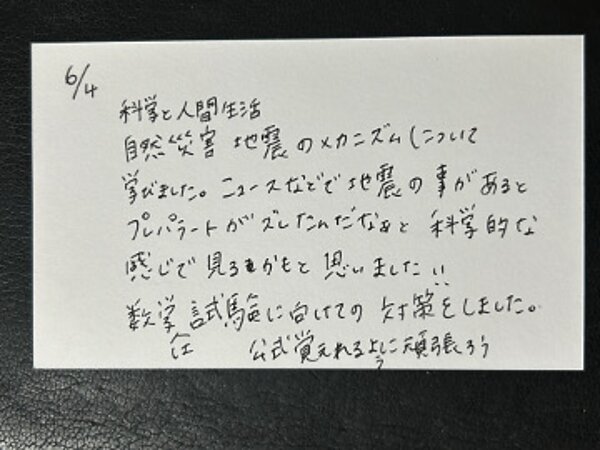 6/4
科学と人間生活
自然災害 地震のメカニズムについて
学びました。ニュースなどで地震の事があると
プレパラートがズレしたんだなぁと科学的な
感じで見るかもと思いました!!
数学 試験に向けての対策をしました。
公式覚えれるように頑張ろう